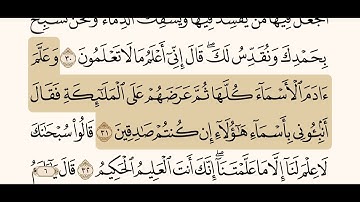 أَتَجْعَلُ فِيهَا مَن يُفْسِدُ فِيهَا وَيَسْفِكُ ٱلدِّمَآءَ وَنَحْنُ نُسَبِّحُ
بِحَمْدِكَ وَنُقَدِّسُ لَكَ ۖ قَالَ إِنِّىٓ أَعْلَمُ مَا لَا تَعْلَمُونَ ٣٠ وَعَلَّمَ
ءَادَمَ ٱلْأَسْمَآءَ كُلَّهَا ثُمَّ عَرَضَهُمْ عَلَى ٱلْمَلَـٰٓئِكَةِ فَقَالَ
أَنۢبِـُٔونِى بِأَسْمَآءِ هَـٰٓؤُلَآءِ إِن كُنتُمْ صَـٰدِقِينَ ٣١ قَالُوا۟ سُبْحَـٰنَكَ
لَا عِلْمَ لَنَآ إِلَّا مَا عَلَّمْتَنَآ ۖ إِنَّكَ أَنتَ ٱلْعَلِيمُ ٱلْحَكِيمُ ٣٢ قَالَ يَـٰٓـَٔادَمُ
٦